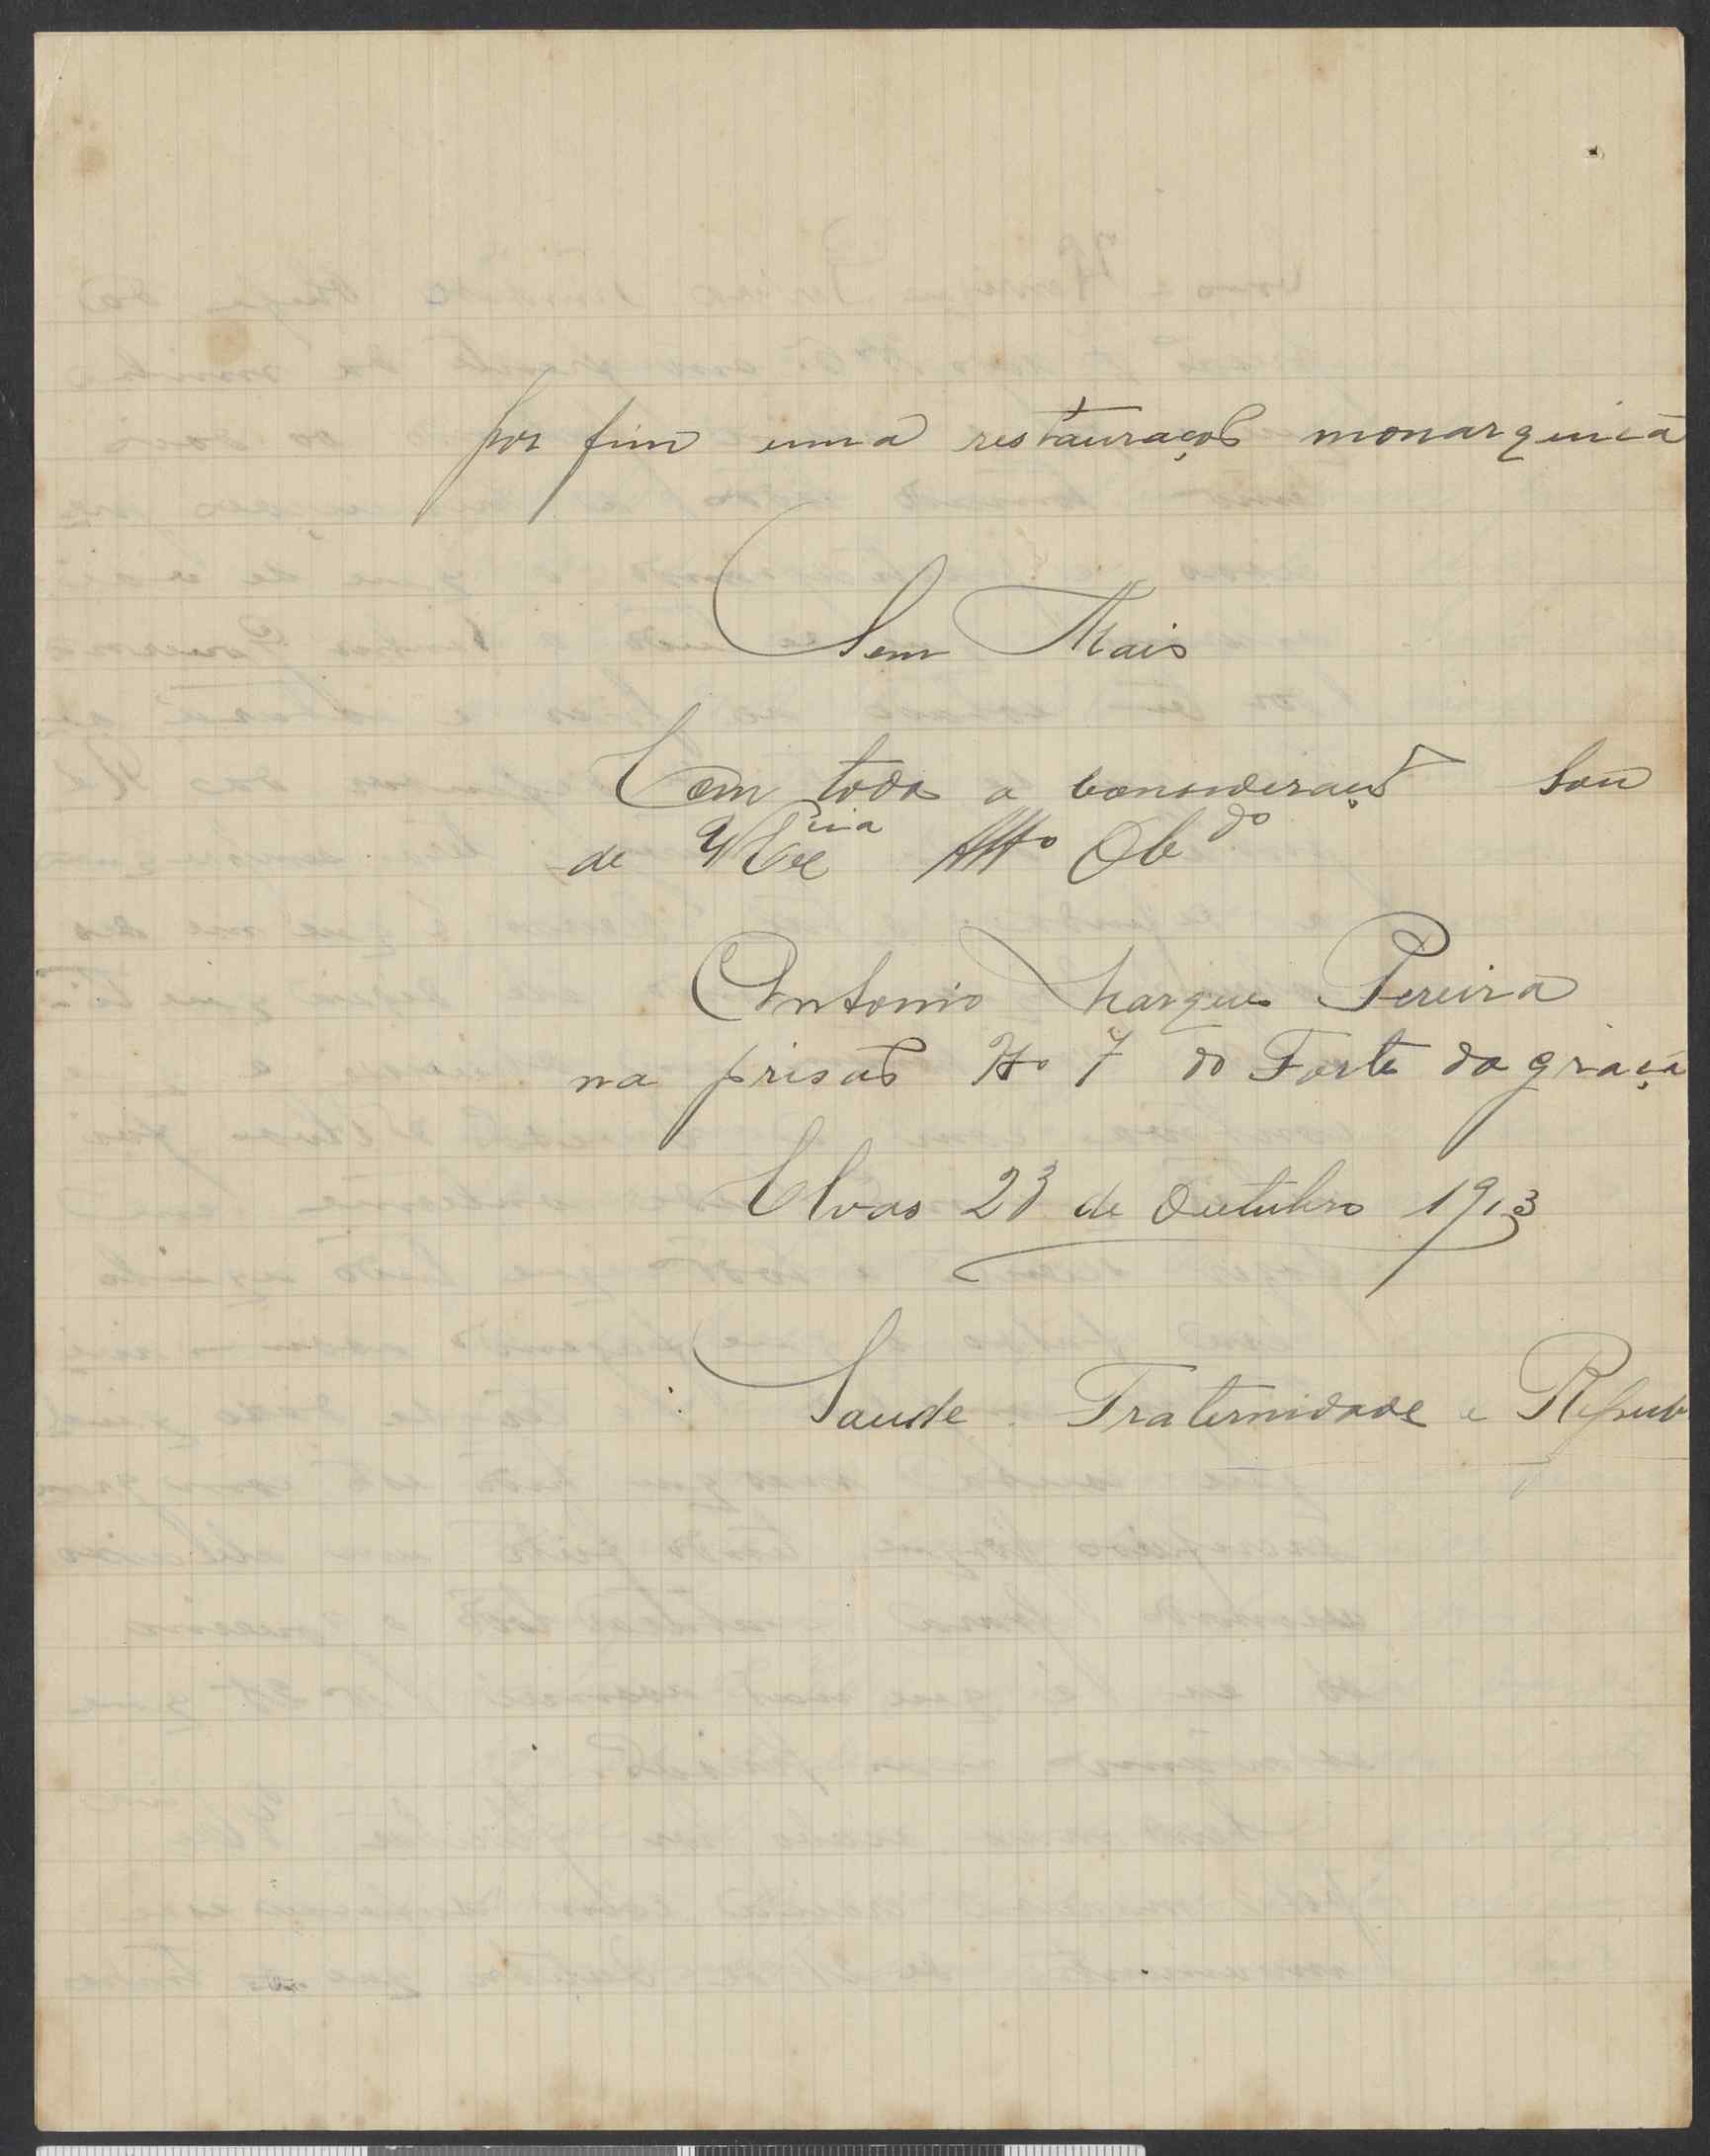 por fim uma restauração monarquica
Sem Mais
Com toda a consideração Sou
de V Ex cia Att.º Ob do
Antonio Marques Pereira
na prisão Nº 7 do Forte da graça
Elvas 23 de Outubro 1913
Saude Fraternidade e Repub